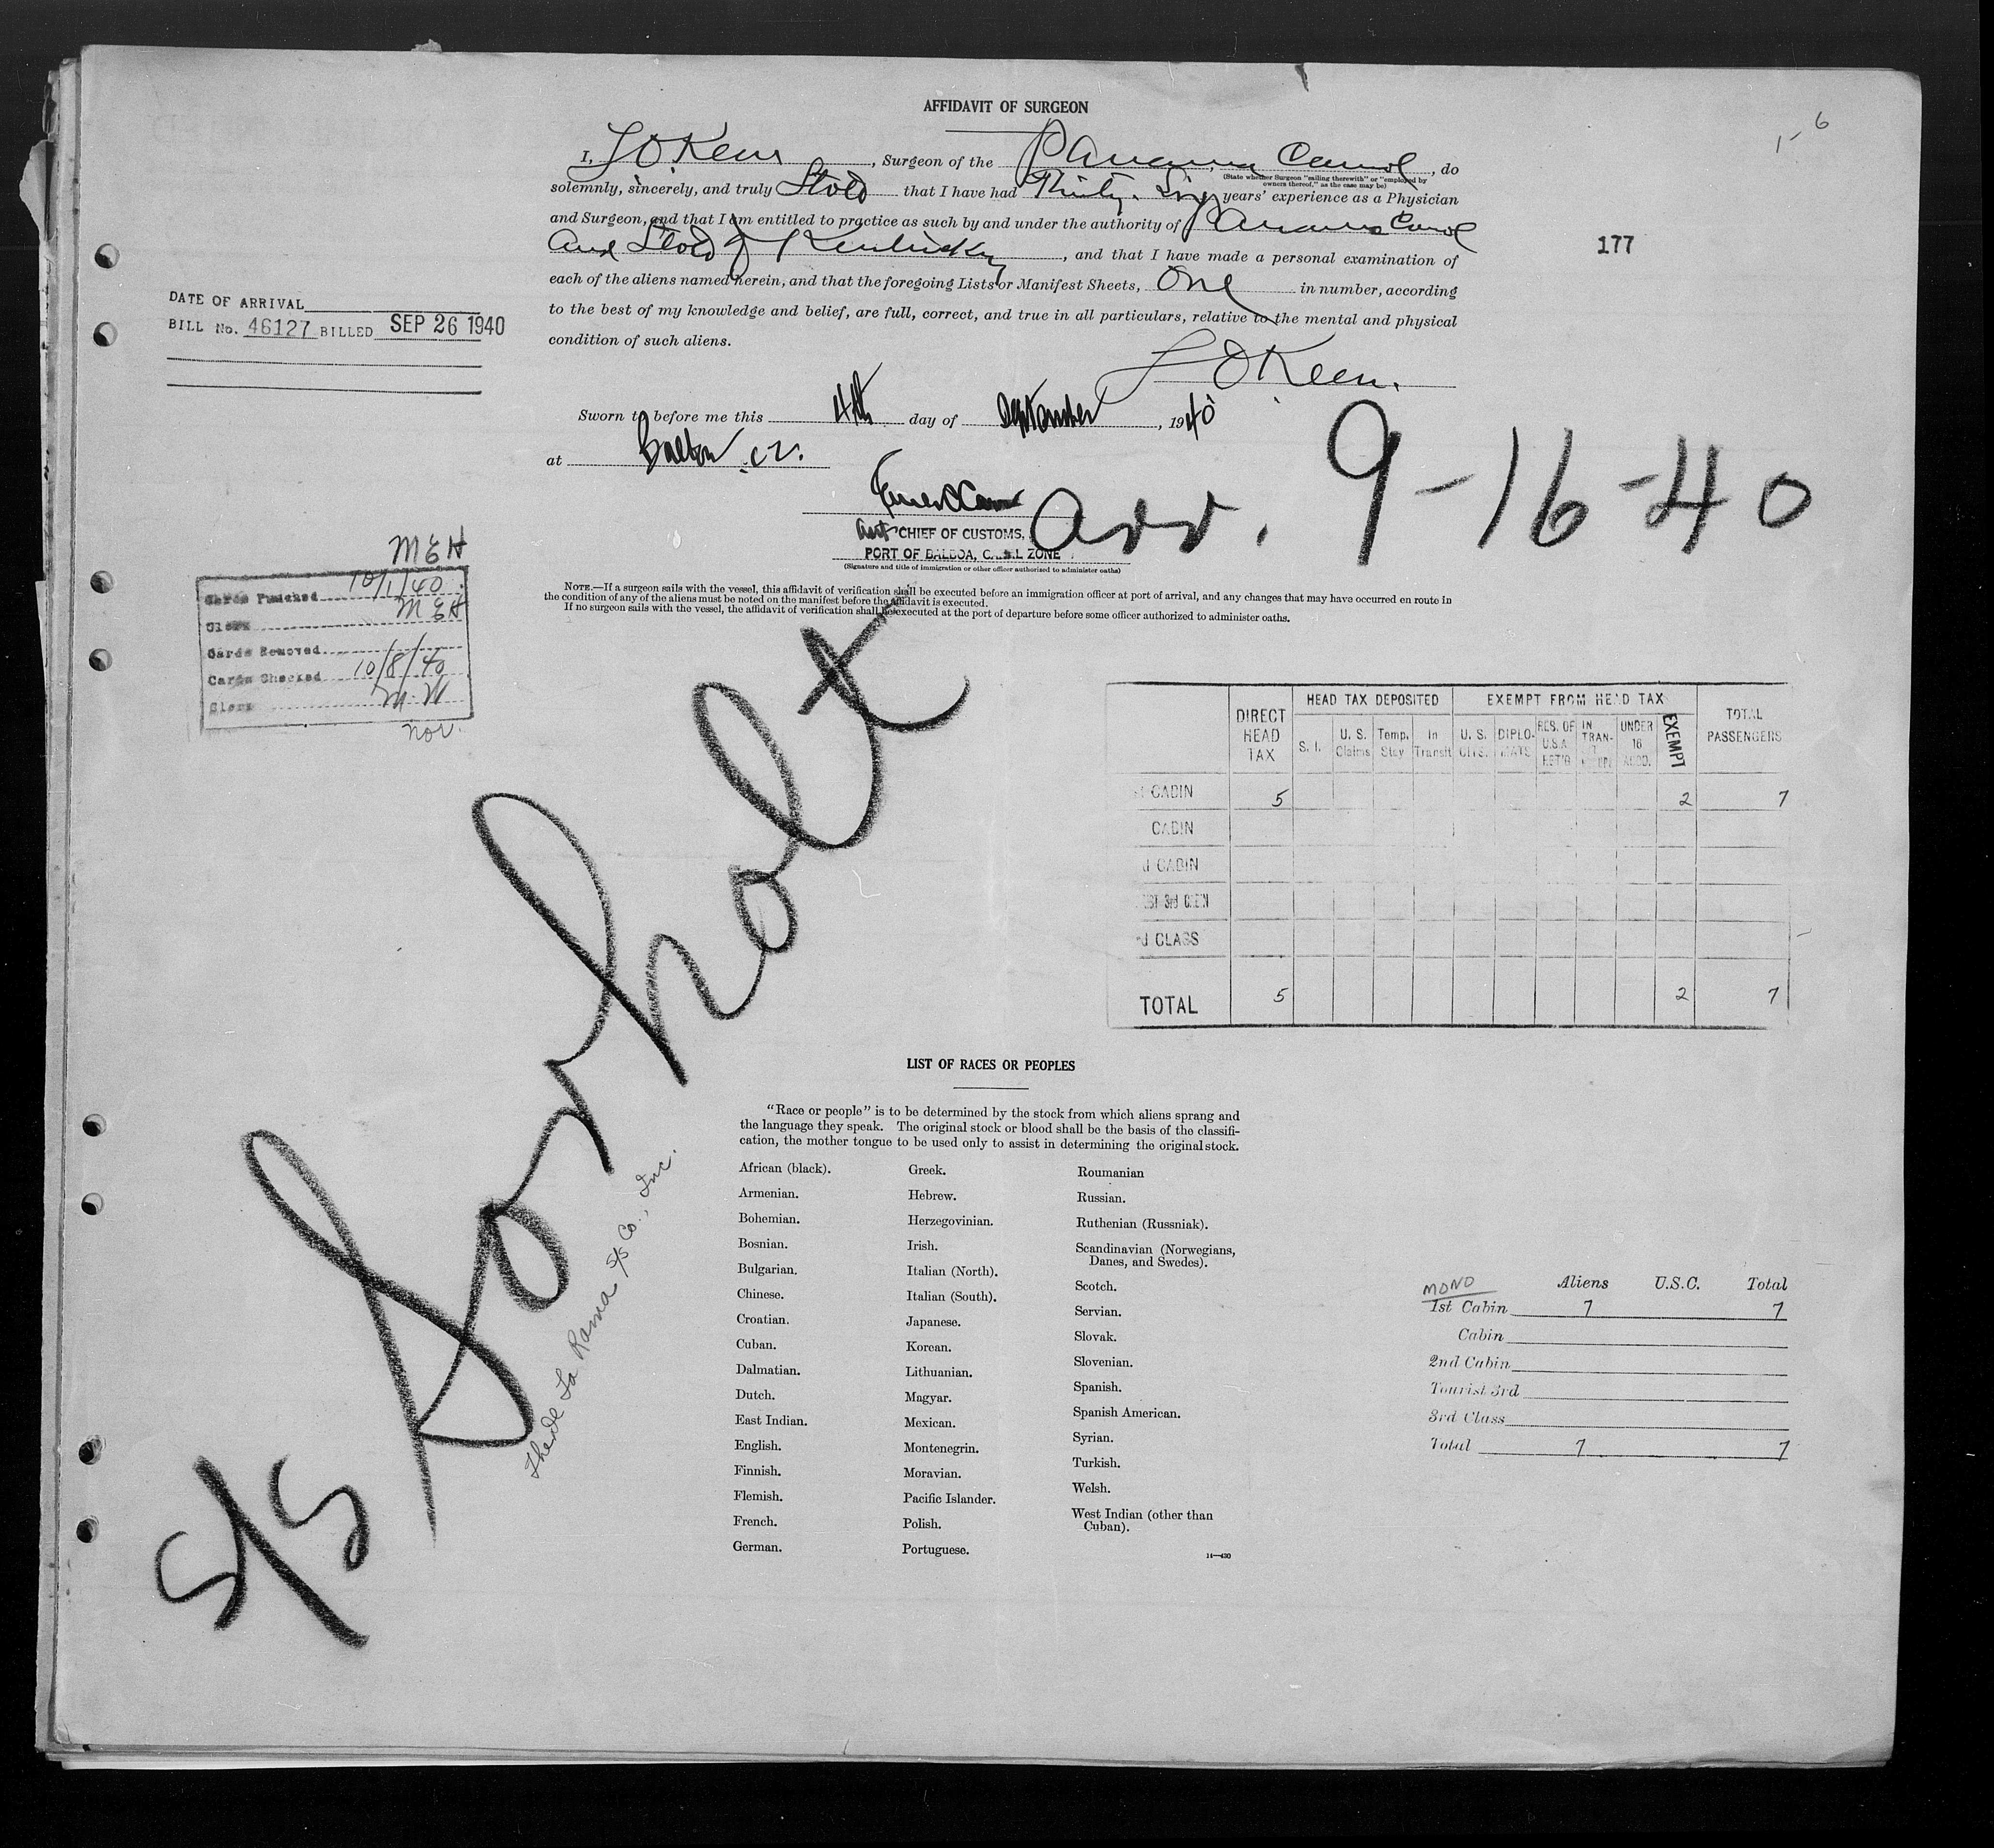 AFFIDAVIT OF SURGEON
1-6
I, L O Keen, Surgeon of the Panama Canal, do
(State whether Surgeon "sailing therewith" or "employed by
owners thereof," as the case may be)
solemnly, sincerely, and truly that I have had Thirty-Six years' experience as a Physician
and Surgeon, and that I am entitled to practice as such by and under the authority of Panama Canal
and State of Kentucky, and that I have made a personal examination of
177
each of the aliens named herein, and that the foregoing Lists or Manifest Sheets, One in number, according
to the best of my knowledge and belief, are full, correct, and true in all particulars, relative to the mental and physical
condition of such aliens.
DATE OF ARRIVAL
BILL No. 46127 BILLED SEP 26 1940
L O Keen.
Sworn to before me this 4th day of September, 1940
at Balboa, C.Z.
Arr. 9-16-40
Asst CHIEF OF CUSTOMS,
PORT OF BALBOA, CANAL ZONE
(Signature and title of immigration or other officer authorized to administer oaths)
NOTE.—If a surgeon sails with the vessel, this affidavit of verification shall be executed before an immigration officer at port of arrival, and any changes that may have occurred en route in
the condition of any of the aliens must be noted on the manifest before the affidavit is executed.
If no surgeon sails with the vessel, the affidavit of verification shall be executed at the port of departure before some officer authorized to administer oaths.
MEH
Cards Punched 10/1/40
Clerk MEH
Cards Removed
Cards Checked 10/8/40
Clerk M.W
nov.
DIRECT HEAD TAX
HEAD TAX DEPOSITED
EXEMPT FROM HEAD TAX
TOTAL PASSENGERS
S. I. U. S. Claims Temp. Stay In Transit U. S. CITS. DIPLOMATS RES. OF U.S.A. RET'G IN TRAN- UNDER 16 ACCD. EXEMPT
CABIN 5 2 7
CABIN
d CABIN
3rd
d CLASS
TOTAL 5 2 7
S/S Sorholt
The De La Rama S/S Co., Inc.
LIST OF RACES OR PEOPLES
"Race or people" is to be determined by the stock from which aliens sprang and
the language they speak. The original stock or blood shall be the basis of the classifi-
cation, the mother tongue to be used only to assist in determining the original stock.
African (black).
Armenian.
Bohemian.
Bosnian.
Bulgarian.
Chinese.
Croatian.
Cuban.
Dalmatian.
Dutch.
East Indian.
English.
Finnish.
Flemish.
French.
German.
Greek.
Hebrew.
Herzegovinian.
Irish.
Italian (North).
Italian (South).
Japanese.
Korean.
Lithuanian.
Magyar.
Mexican.
Montenegrin.
Moravian.
Pacific Islander.
Polish.
Portuguese.
Roumanian
Russian.
Ruthenian (Russniak).
Scandinavian (Norwegians,
Danes, and Swedes).
Scotch.
Servian.
Slovak.
Slovenian.
Spanish.
Spanish American.
Syrian.
Turkish.
Welsh.
West Indian (other than
Cuban).
14—430
MONO Aliens U.S.C. Total
1st Cabin 7 7
Cabin
2nd Cabin
Tourist 3rd
3rd Class
Total 7 7